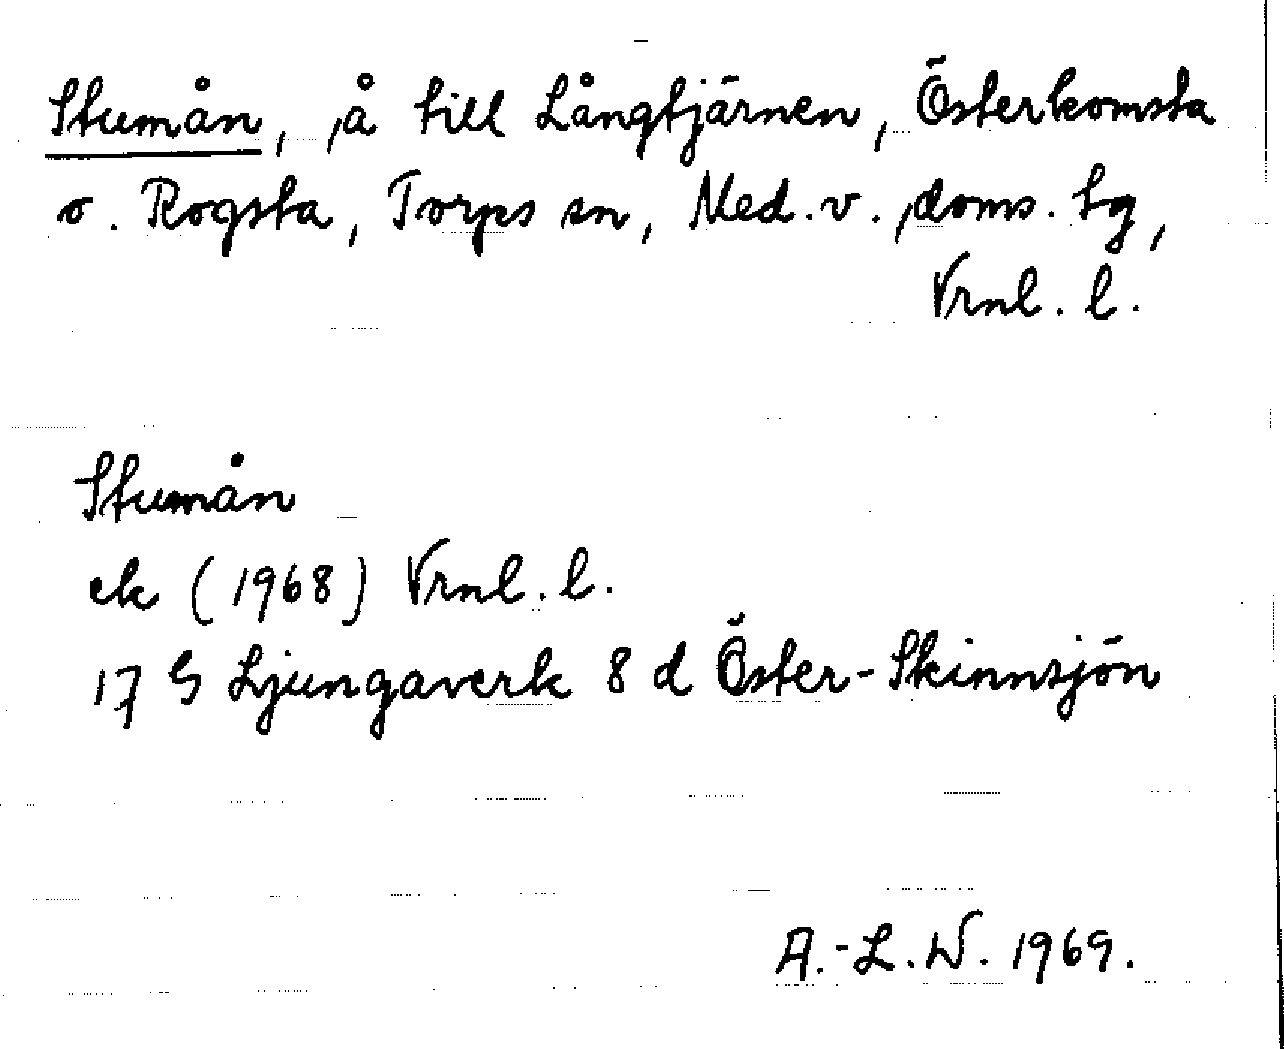 Stumån, å till Långtjärnen, Österkomsta
o. Rogsta, Torps sn, Med.v. doms. tg,
Vrnl. l.
Stumån
ek (1968) Vrnl. l.
17 G Ljungaverk 8 d Öster-Skinnsjön
A.-L.W. 1969.